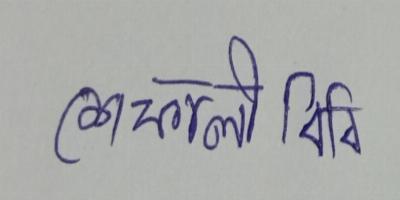 শেফালী বিবি